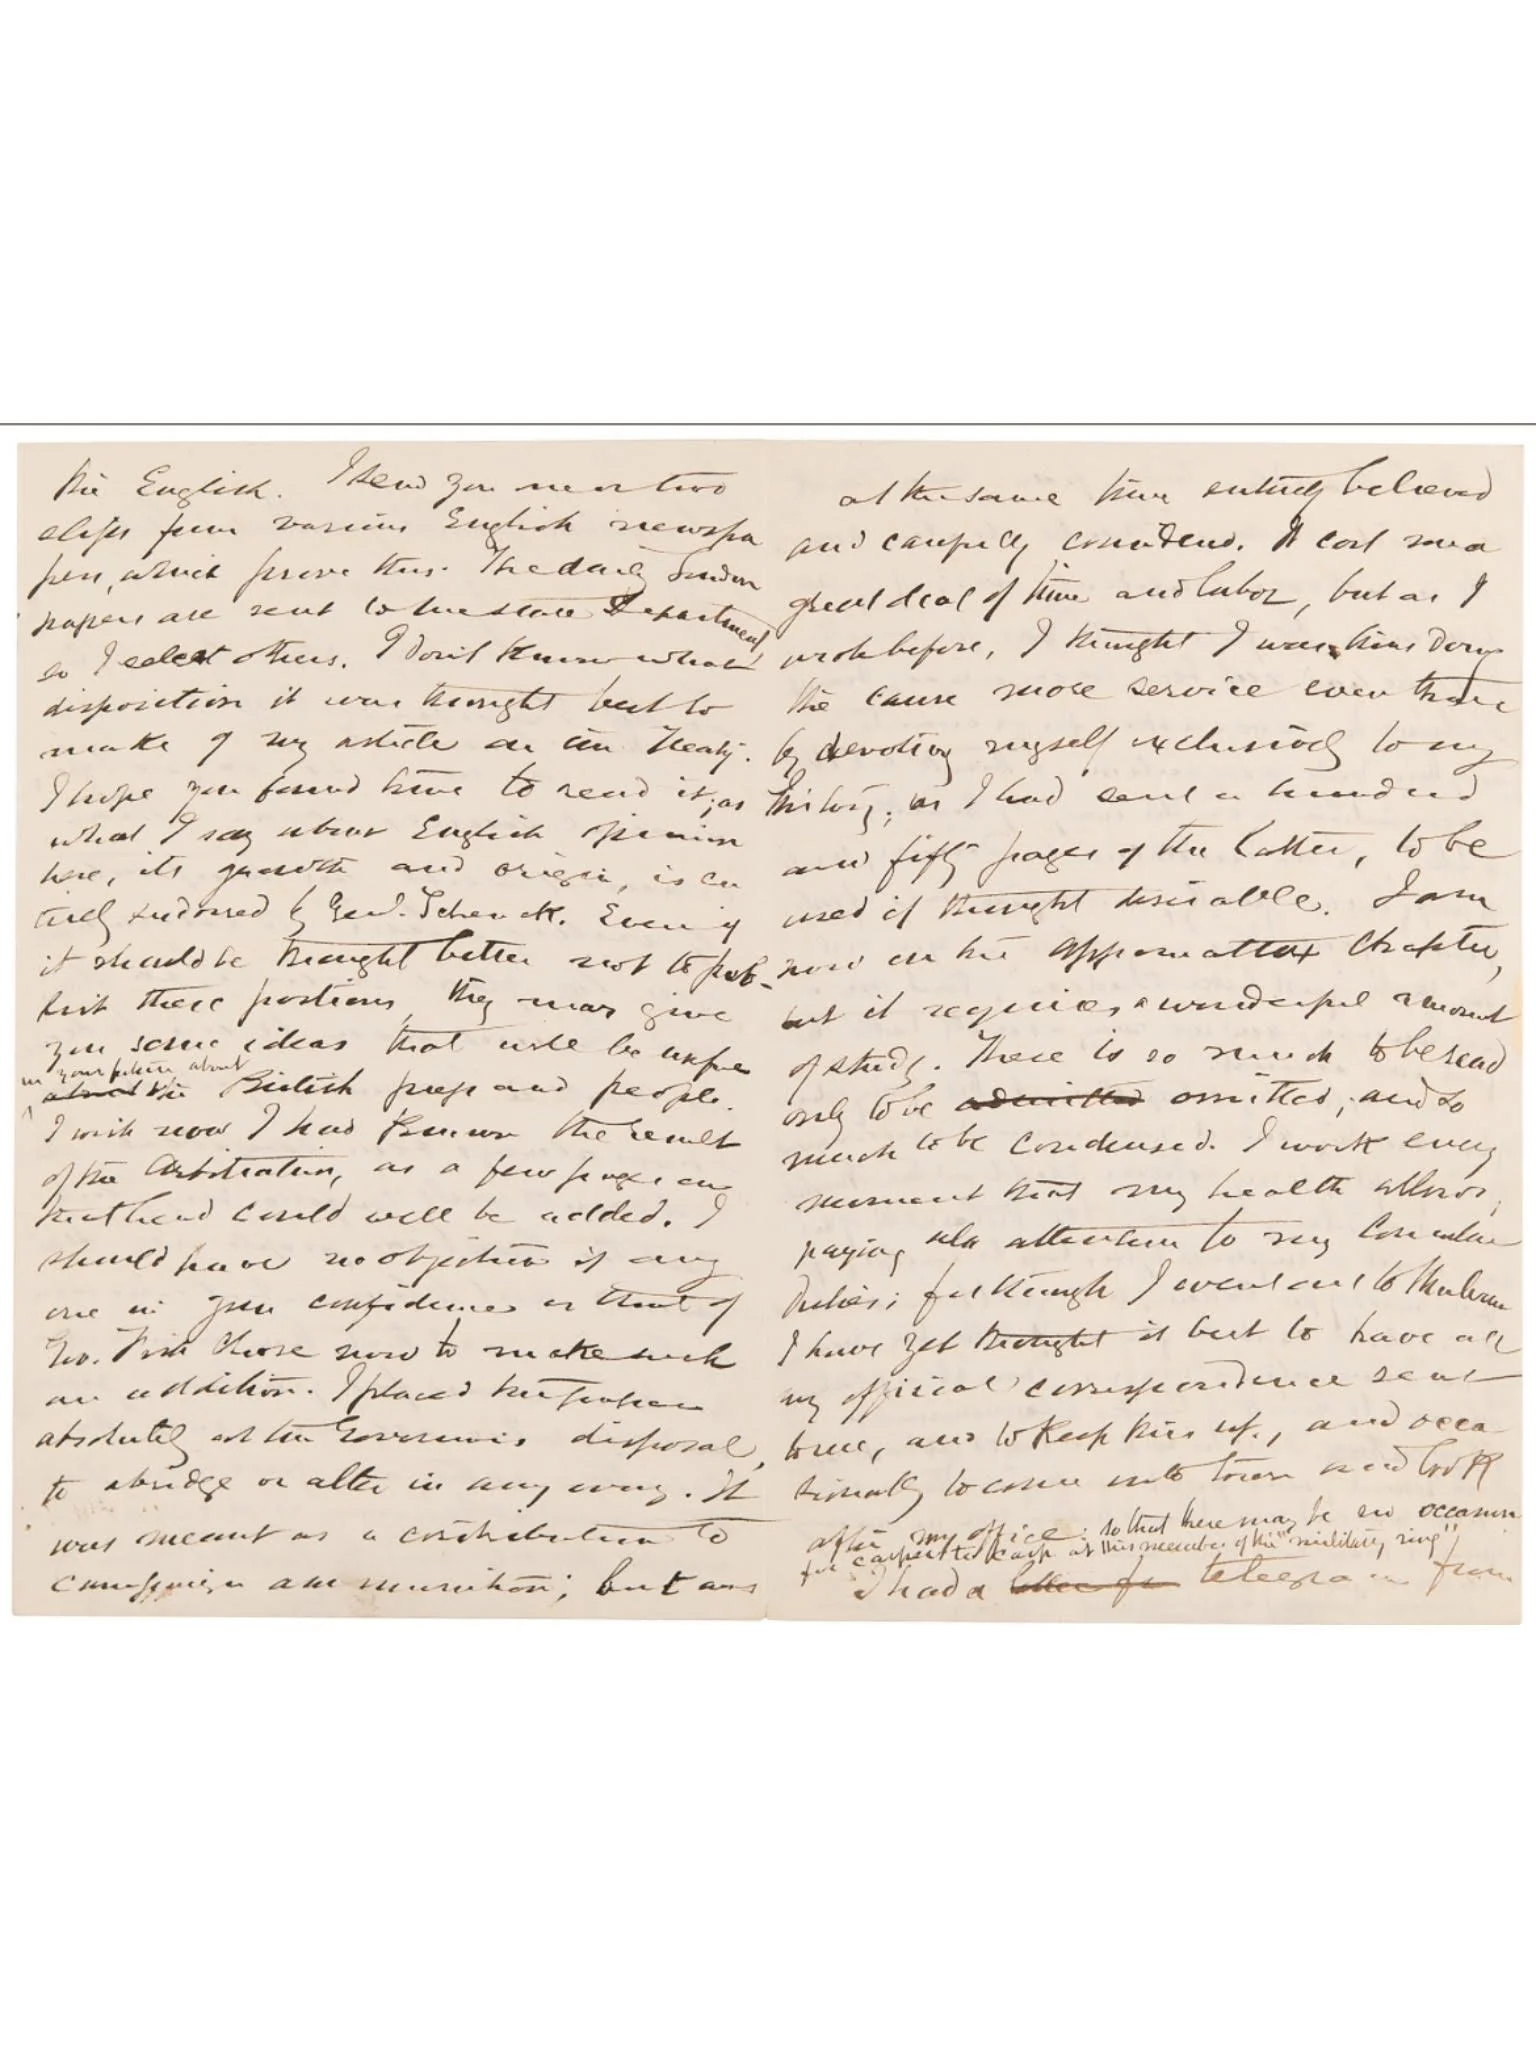 the English. I send you one or two
clips from various English newspa
pers, which prove this. The daily London
papers are sent to the State Department,
so I select others. I don't know what
disposition it was thought best to
make of my article on the Treaty.
I hope you found time to read it; as
what I say about English opinion
here, its growth and origin, is en
tirely endorsed by Genl. Schenck. Even if
it should be thought better not to pub-
lish these portions, they may give
you some ideas that will be useful
in your future about
about the British press and people.
I wish now I had known the result
of the Arbitration, as a few pages on
that head could well be added. I
should have no objection if any
one in your confidence or that of
Gov. Fish chose now to make such
an addition. I placed the paper
absolutely at the Governor's disposal,
to abridge or alter in any way. It
was meant as a contribution to
campaign ammunition; but was
at the same time entirely believed
and carefully considered. It cost me a
great deal of time and labor, but as I
wrote before, I thought I was thus doing
the cause more service even than
by devoting myself exclusively to my
History; as I had sent a hundred
and fifty pages of the latter, to be
used if thought desirable. I am
now on the Appomattox Chapter,
but it requires a wonderful amount
of study. There is so much to be read
only to be admitted omitted; and so
much to be condensed. I work every
moment that my health allows,
paying also attention to my Consular
duties; for though I went out to
I have yet thought it best to have all
my official correspondence sent
to me, and to keep this up, and occa
sionally to come into town and look
after my office: so that there may be no occasion
for carpers to carp at this member of the "military ring"
I had a letter fr telegram from